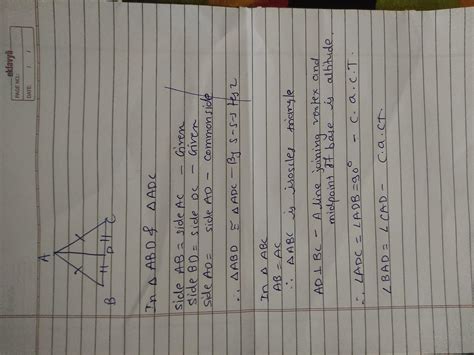 eklavya
PAGE NO.:
DATE: / /
A
B D C
In △ ABD & △ ADC
side AB = side AC - Given
side BD = side DC - Given
side AD = side AD - common side
∴ △ABD ≅ △ADC - By S-S-S test
In △ ABC
AB = AC
∴ △ABC is isosiles triangle
AD ⊥ BC - A line joining vortex and
midpoint of base is altitude
∴ ∠ADC = ∠ADB = 90° - C.a.C.T.
∠BAD = ∠CAD - C.a.CT.